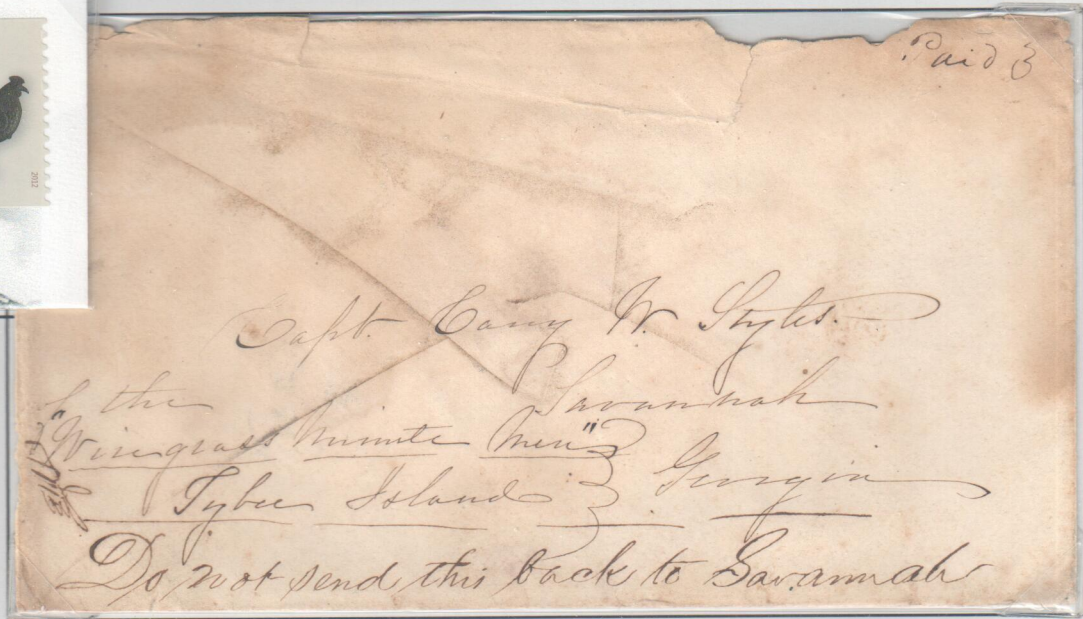 Paid 3
2012
Capt. Cary W. Styles.
Savannah
the
"Wiregrass Minute Men"
Georgia
Tybee Island
Do not send this back to Savannah